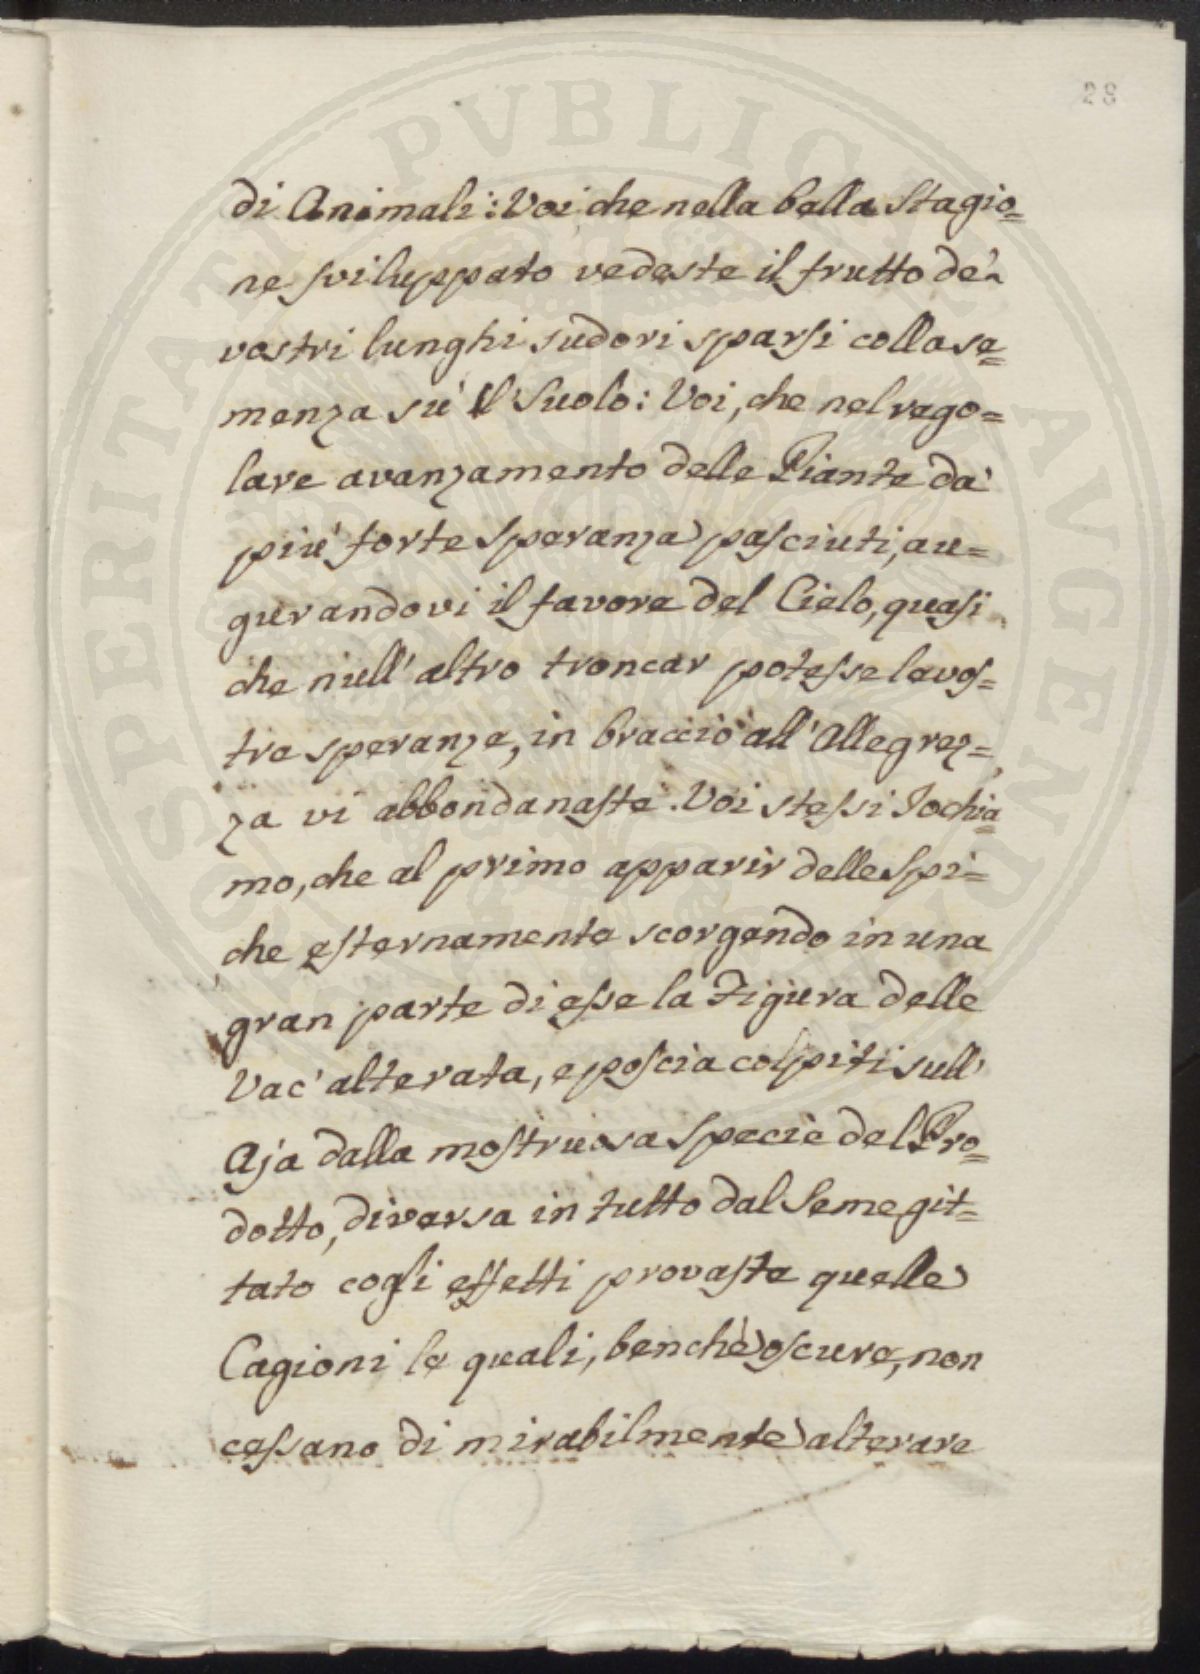 28
PUBLICAE
PROSPERITATI
AUGENDAE
di Animali: Voi che nella bella Stagio=
ne sviluppato vedeste il frutto de'
vostri lunghi sudori sparsi colla se=
menza su 'l Suolo: Voi, che nel rego=
lare avanzamento delle Piante da
più forte speranza pasciuti, au=
gurandovi il favore del Cielo, quasi
che null' altro troncar potesse le vos=
tre speranze, in braccio all' Allegrez=
za vi abbondanaste. Voi stessi Io chia
mo, che al primo apparir delle Spi=
che esternamente scorgendo in una
gran parte di esse la Figura delle
alterata, e poscia colpiti sull'
Aja dalla mostruosa specie del Pro=
dotto, diversa in tutto dal Seme git=
tato cogli effetti provaste quelle
Cagioni le quali, benchè oscure, non
cessano di mirabilmente alterare